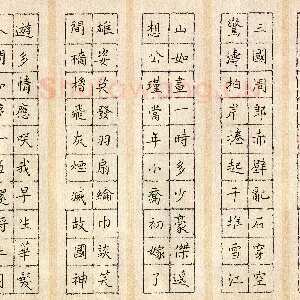 三國周郎赤壁亂石穿空
驚濤拍岸捲起千堆雪江
山如畫一時多少豪傑遙
想公瑾當年小喬初嫁了
雄姿英發羽扇綸巾談笑
間檣櫓飛灰煙滅故國神
遊多情應咲我早生華髮